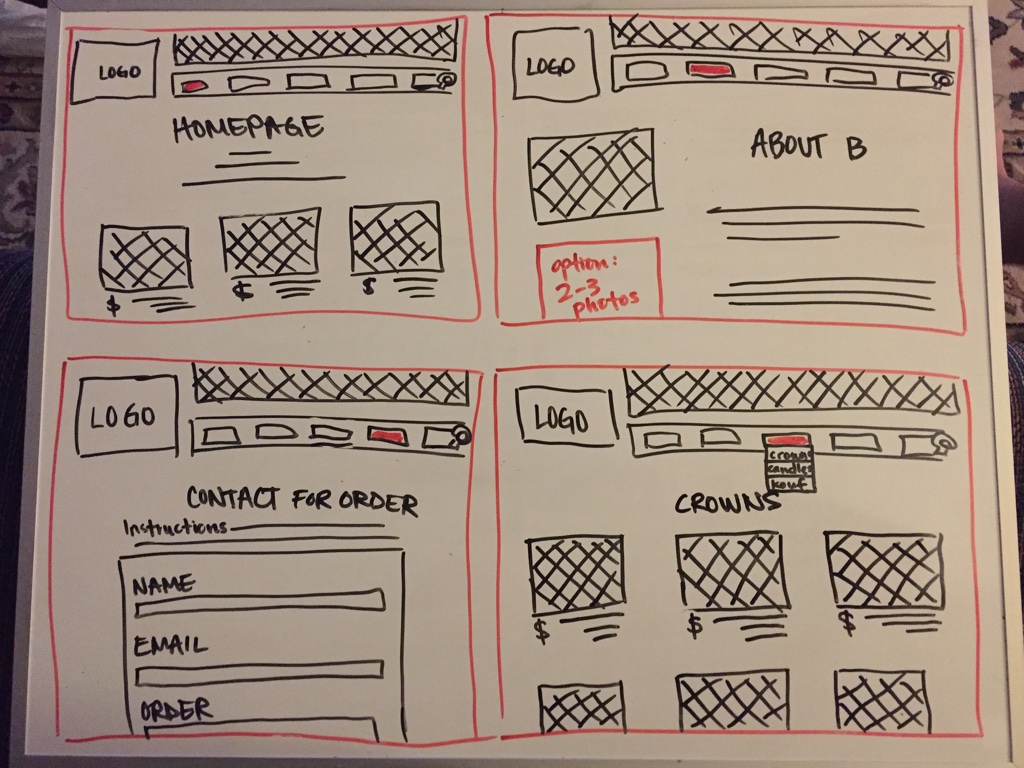 LOGO
HOMEPAGE
$ $ $
LOGO
ABOUT B
option:
2-3
photos
LOGO
CONTACT FOR ORDER
Instructions
NAME
EMAIL
ORDER
LOGO
crowns
candles
CROWNS
$ $ $